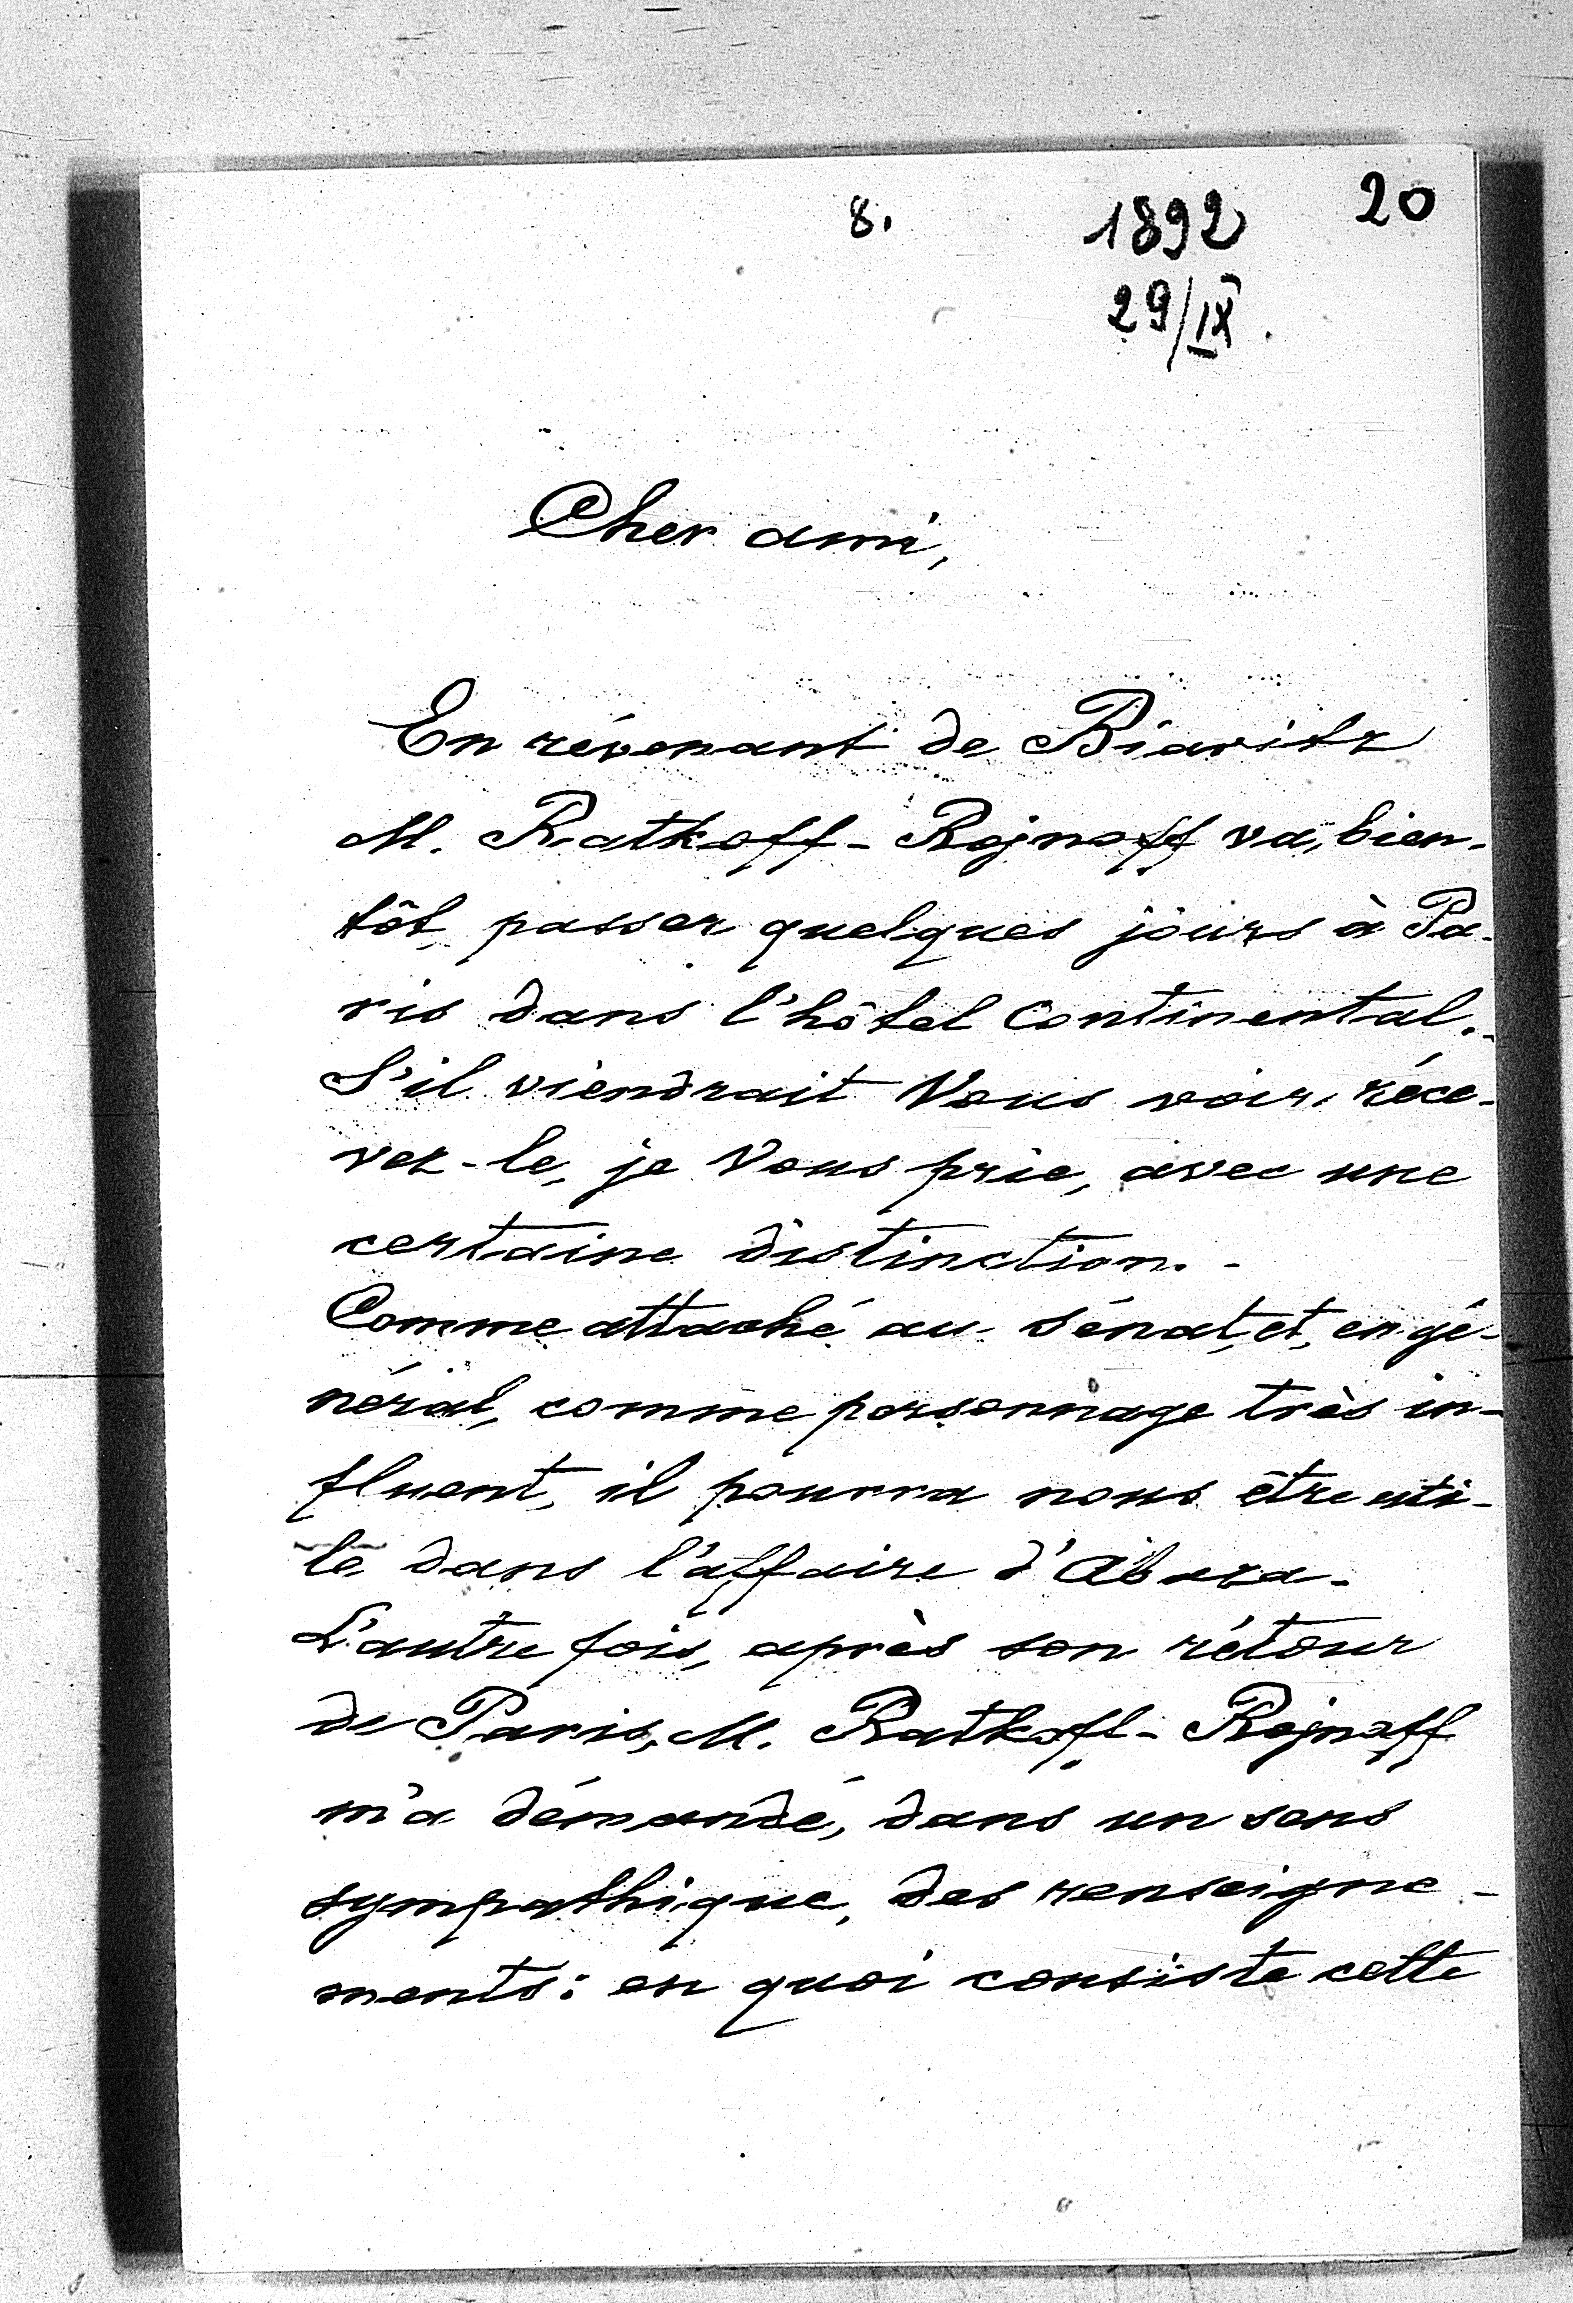 8. 1892 20
29/IX.
Cher ami,
En révenant de Biaritz
M. Ratkoff-Rojnoff va, bien-
tôt, passer quelques jours à Pa-
ris dans l'hôtel Continental.-
S'il viendrait Vous voir, réce-
vez-le, je Vous prie, avec une
certaine distinction.-
Comme attaché au Sénat, et, en gé-
néral, comme personnage très in-
fluent, il pourra nous être uti-
le dans l'affaire d'Abaza.
L'autre fois, après son rétour
de Paris, M. Ratkoff-Rojnoff
m'a démandé, dans un sens
sympathique, des renseigne-
ments: en quoi consiste cette